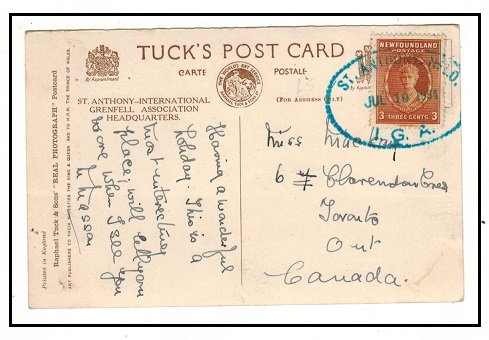 TUCK'S POST CARD
CARTE POSTALE
(For Address Only)
ST. ANTHONY-INTERNATIONAL
GRENFELL ASSOCIATION
HEADQUARTERS.
Having a wonderful
holiday. This is a
most interesting
place, will tell you
more when I see you
Printed in England
Raphael Tuck & Sons' "REAL PHOTOGRAPH" Postcard
ART PUBLISHERS TO THEIR MAJESTIES THE KING & QUEEN AND TO H.R.H. THE PRINCE OF WALES.
By Appointment
NEWFOUNDLAND
POSTAGE
3 THREE CENTS 3
ST.
JUL
I. G. A.
Miss
6 Clarendon
Toronto
Ont
Canada.